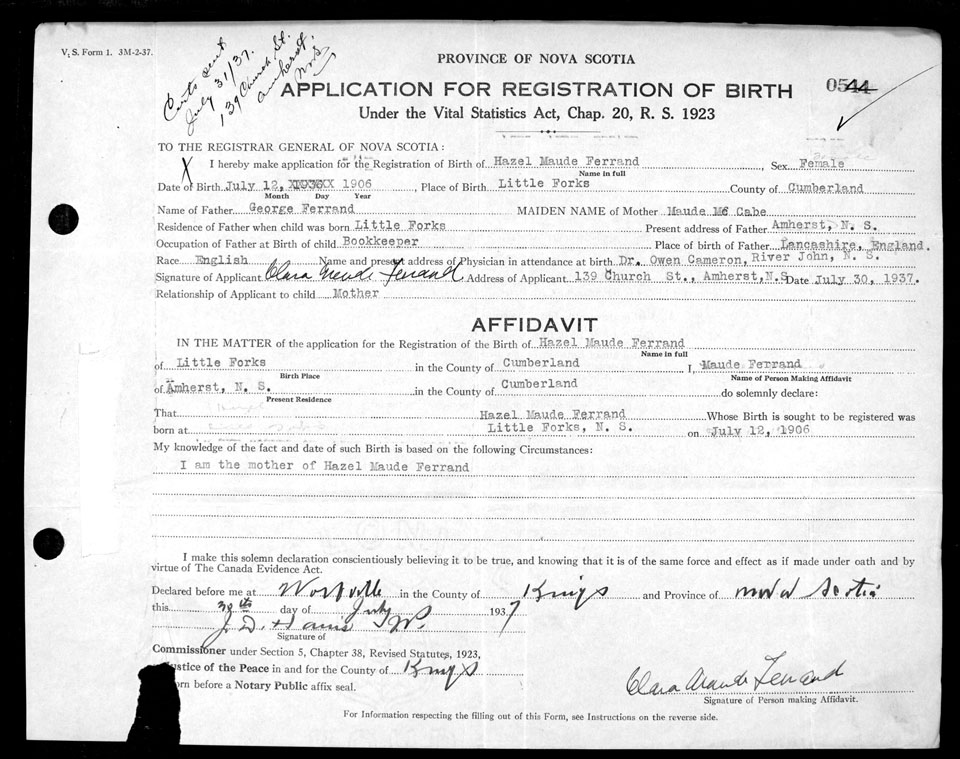 V. S. Form 1. 3M-2-37.
Certs sent
July 31/37.
139 Church St.
Amherst,
N.S.
PROVINCE OF NOVA SCOTIA
APPLICATION FOR REGISTRATION OF BIRTH
0544
Under the Vital Statistics Act, Chap. 20, R. S. 1923
TO THE REGISTRAR GENERAL OF NOVA SCOTIA:
X I hereby make application for the Registration of Birth of Hazel Maude Ferrand, Sex Female
Name in full
Date of Birth July 12, 1906, Place of Birth Little Forks County of Cumberland
Month Day Year
Name of Father George Ferrand MAIDEN NAME of Mother Maude Mc Cabe
Residence of Father when child was born Little Forks Present address of Father Amherst, N. S.
Occupation of Father at Birth of child Bookkeeper Place of birth of Father Lancashire, England.
Race English Name and present address of Physician in attendance at birth Dr. Owen Cameron, River John, N. S.
Signature of Applicant Clara Maude Ferrand Address of Applicant 139 Church St., Amherst, N.S Date July 30, 1937.
Relationship of Applicant to child Mother
AFFIDAVIT
IN THE MATTER of the application for the Registration of the Birth of Hazel Maude Ferrand
Name in full
of Little Forks in the County of Cumberland I, Maude Ferrand
Birth Place Name of Person Making Affidavit
of Amherst, N. S. in the County of Cumberland do solemnly declare:
Present Residence
That Hazel Maude Ferrand Whose Birth is sought to be registered was
born at Little Forks, N. S. on July 12, 1906
My knowledge of the fact and date of such Birth is based on the following Circumstances:
I am the mother of Hazel Maude Ferrand
I make this solemn declaration conscientiously believing it to be true, and knowing that it is of the same force and effect as if made under oath and by
virtue of The Canada Evidence Act.
Declared before me at Wolfville in the County of Kings and Province of Nova Scotia
this 30th day of July 1937
Signature of
Commissioner under Section 5, Chapter 38, Revised Statutes, 1923,
Justice of the Peace in and for the County of Kings
orn before a Notary Public affix seal.
Clara Maude Ferrand
Signature of Person making Affidavit.
For Information respecting the filling out of this Form, see Instructions on the reverse side.